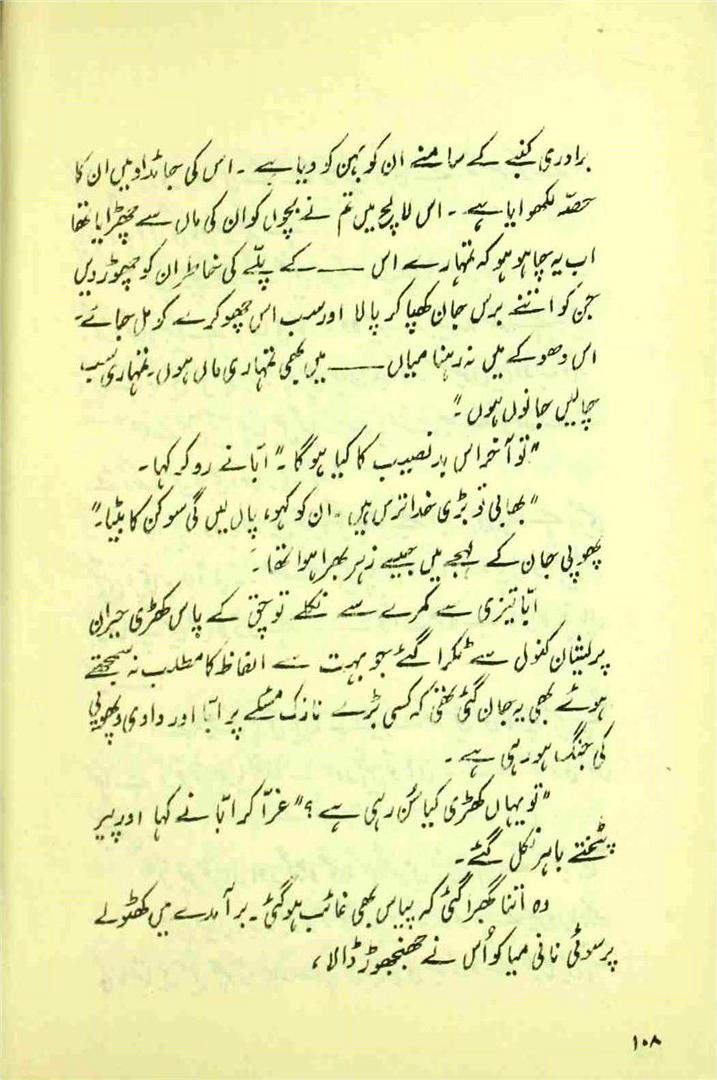 برادری کنبے کے سامنے ان کو بہن کو دیا ہے ۔ اس کی جائداد میں ان کا
حصّہ لکھوایا ہے ۔ اس لالچ میں تم نے بچوں کو ان کی ماں سے چھڑایا تھا
اب یہ چاہو ہو کہ تمہارے اس ــــــ کے پلّے کی خاطر ان کو چھوڑ دیں
جن کو اتنے برس جان کھپا کر پالا اور سب اس چھوکرے کو مل جائے۔
اس دھوکے میں نہ رہنا میاں ــــــ میں بھی تمہاری ماں ہوں۔ تمہاری سب
چالیں جانوں ہوں ۔"
"تو آخر اس بدنصیب کا کیا ہوگا ۔" ابّا نے رو کر کہا ۔
"بھابی تو بڑی خدا ترس ہیں ۔ ان کو کہو، پال لیں گی سوکن کا بیٹا۔"
پھوپی جان کے لہجے میں جیسے زہر بھرا ہوا تھا ۔
ابّا تیزی سے کمرے سے نکلے تو چق کے پاس کھڑی حیران
پریشان کنول سے ٹکرا گئے جو بہت سے الفاظ کا مطلب نہ سمجھتے
ہوئے بھی یہ جان گئی تھی کہ کسی بڑے نازک مسئلے پر ابّا اور دادی، پھوپی
کی جنگ ہو رہی ہے ۔
"تو یہاں کھڑی کیا سُن رہی ہے ؟" غرّا کر ابّا نے کہا اور پیر
پٹختے باہر نکل گئے ۔
وہ اتنا گھبرا گئی کہ پیاس بھی غائب ہو گئی ۔ برآمدے میں کھٹولے
پر سوئی نانی میا کو اُس نے جھنجھوڑ ڈالا ،
۱۰۸